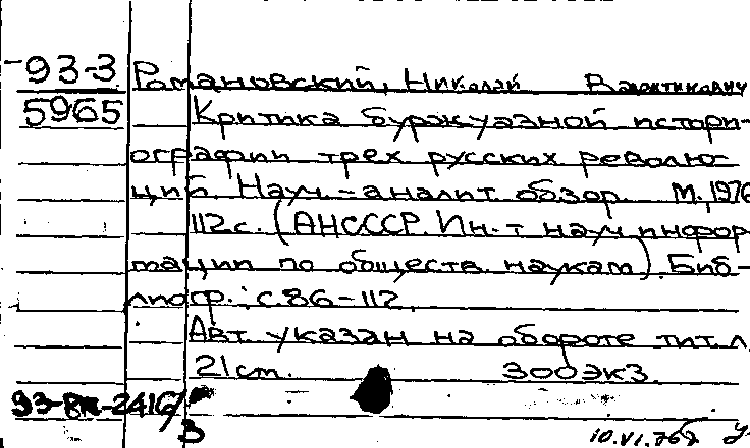 93-3 Романовский, Николай Валентинович
5965 Критика буржуазной истори-
ографии трех русских револю-
ций. Науч.-аналит. обзор. М., 1976
112 с. (АН СССР. Ин-т науч. информ-
мации по обществ. наукам). Биб-
лиогр.: с. 86-112.
Авт. указан на обороте тит. л.
21 см. 300 экз.
10.VI.76г